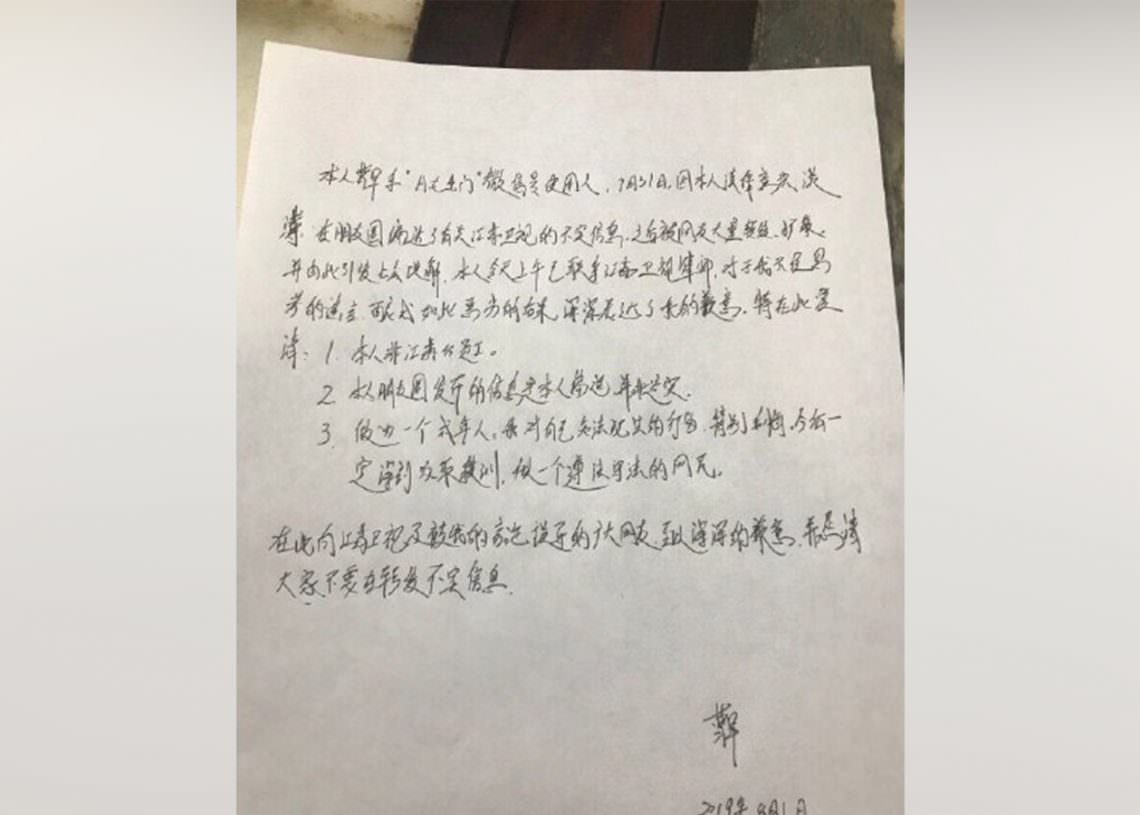 本人 微信号使用人，7月31日，因本人法律意识淡
薄，在朋友圈编造了有关江苏卫视的不实信息，之后被网友大量转发、扩散，
并由此引发 误解，本人今天上午已联系江苏卫视律师，对于
的 如此恶劣的后果，深深表达了我的歉意，特在此澄
清：1. 本人非江苏台员工。
2. 本人朋友圈发布的信息是本人编造 并非真实.
3. 做为一个成年人，我对自己 的行为，特别 今后一
定 吸取教训，做一个遵法守法的网民。
在此向江苏卫视及被我的 误导的广大网友 致以深深的歉意，并 请
大家不要在转发不实信息.
2019年8月1日